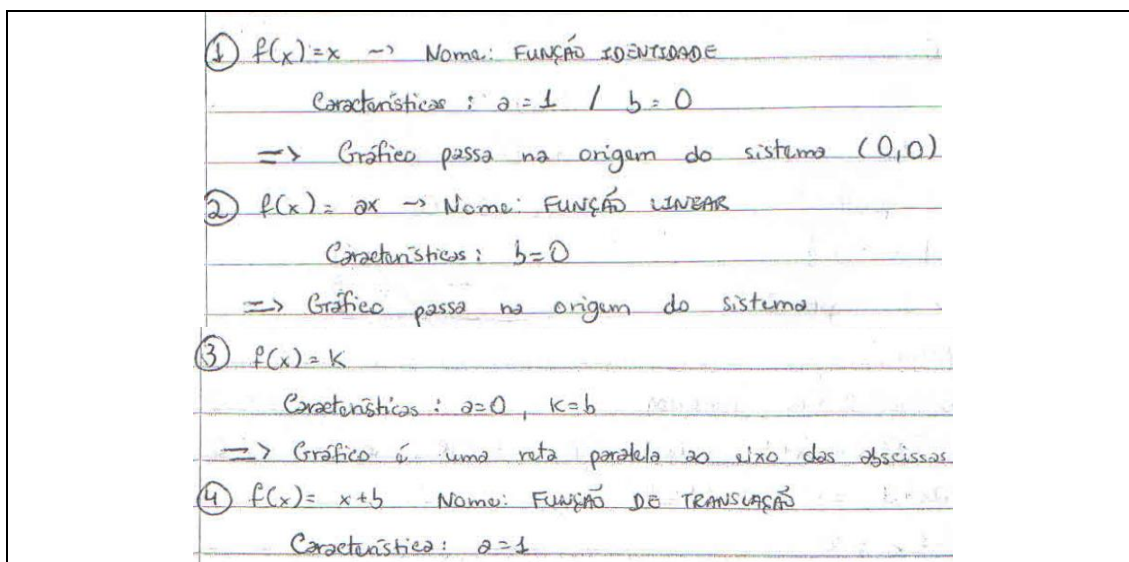 ① f(x)=x → Nome: FUNÇÃO IDENTIDADE
Características : a=1 / b=0
=> Gráfico passa na origem do sistema (0,0)
② f(x)= ax → Nome: FUNÇÃO LINEAR
Características : b=0
=> Gráfico passa na origem do sistema
③ f(x)= K
Características : a=0, K=b
=> Gráfico é uma reta paralela ao eixo das abscissas
④ f(x)= x+b Nome: FUNÇÃO DE TRANSLAÇÃO
Característica: a=1